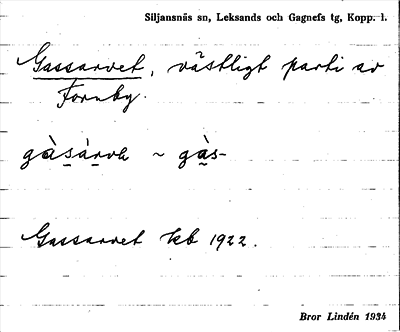 Siljansnäs sn, Leksands och Gagnefs tg, Kopp. l.
Gassarvet, västligt parti av
Fornby.
gàs̱àṟva ~ gàs̱-
Gassarvet kb 1922.
Bror Lindén 1934